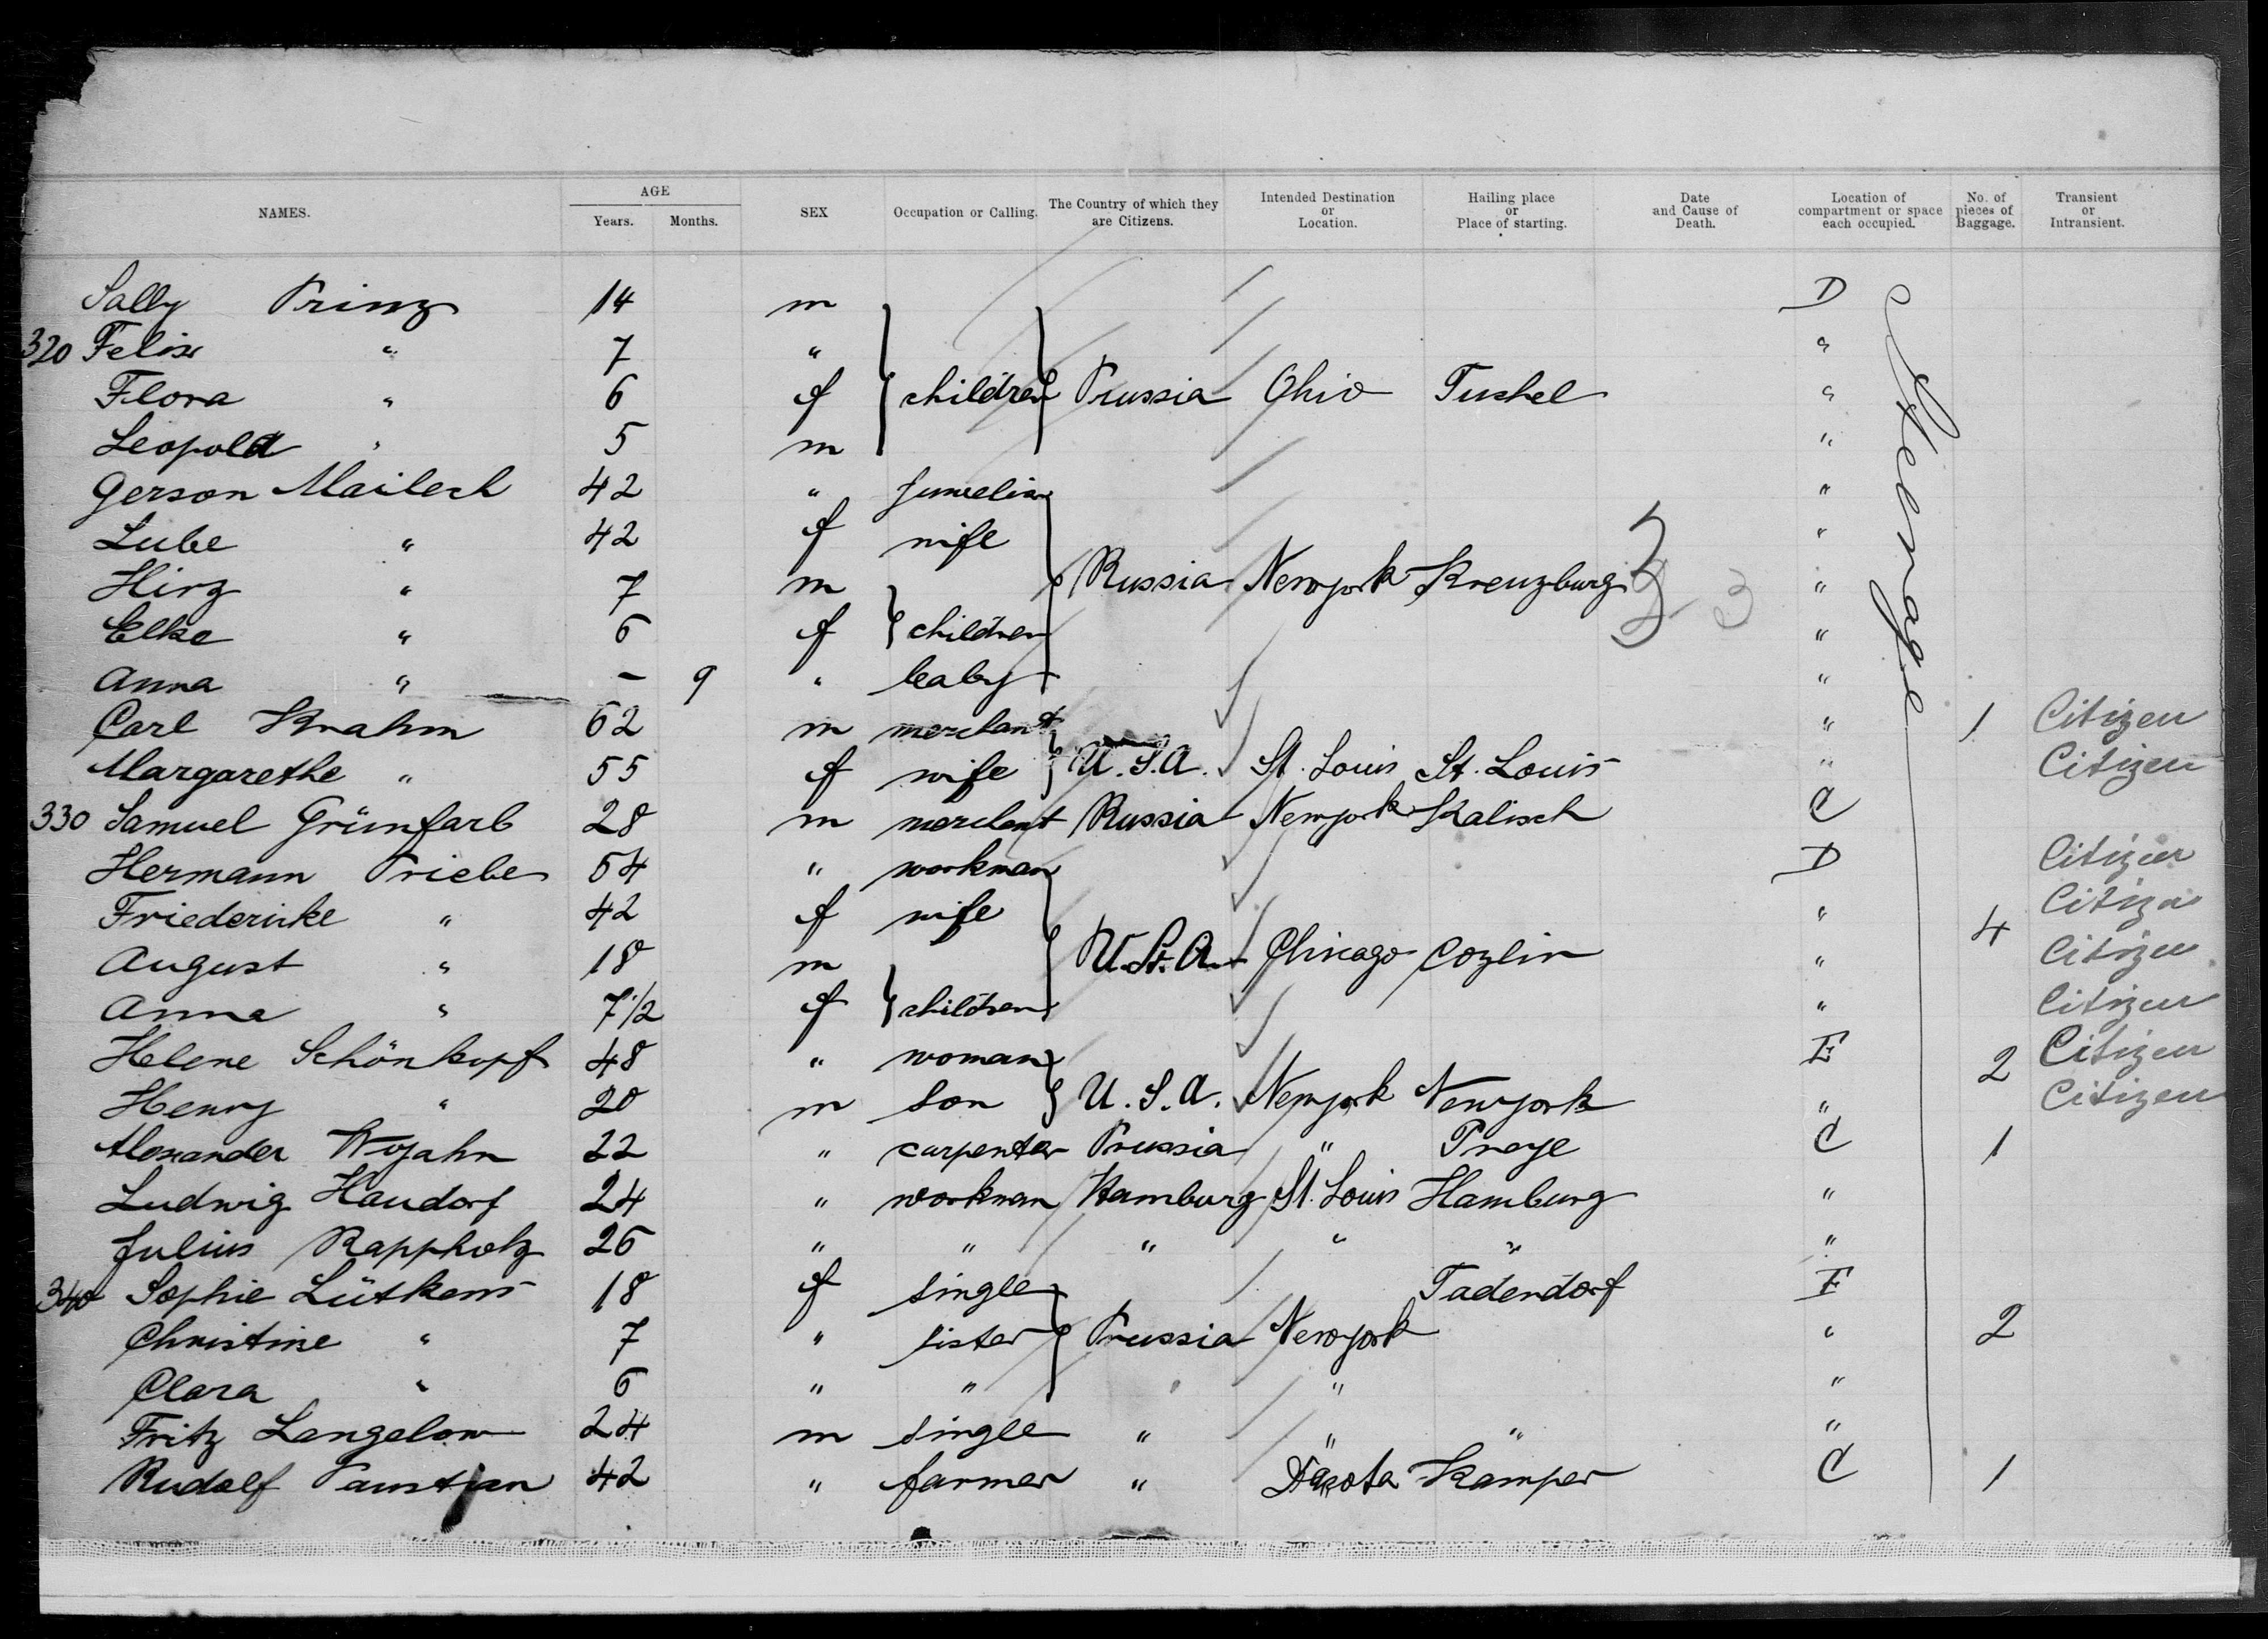 NAMES. AGE Years. Months. SEX Occupation or Calling. The Country of which they are Citizens. Intended Destination or Location. Hailing place or Place of starting. Date and Cause of Death. Location of compartment or space each occupied. No. of pieces of Baggage. Transient or Intransient.
Sally Prinz 14 m D
320 Felix " 7 " "
Flora " 6 f children Prussia Ohio Tuchel "
Leopold " 5 m "
Gerson Mailech 42 " "
Lube " 42 f wife "
Hirz " 7 m Russia Newyork Kreuzburg 3 "
Elke " 6 f children "
Anna " – 9 " baby "
Carl Krahm 62 m merchant " 1 Citizen
Margarethe " 55 f wife U.S.A. St. Louis St. Louis " Citizen
330 Samuel Grünfarb 28 m merchant Russia Newyork Kalisch C
Hermann Priebe 54 " workman D Citizen
Friederike " 42 f wife " 4 Citizen
August " 18 m U.St.A. Chicago Cozlin " Citizen
Anna " 7 1/2 f children " Citizen
Helene Schönkopf 48 " woman E 2 Citizen
Henry " 20 m son U.S.A. Newyork Newyork " Citizen
Alexander Wojahn 22 " carpenter Prussia " C 1
Ludwig Haudorf 24 " workman Hamburg St. Louis Hamburg "
Julius Rappholz 26 " " " " " "
340 Sophie Lütkens 18 f single Tadendorf E
Christine " 7 " sister Prussia Newyork " 2
Clara " 6 " " " "
Fritz Langelow 24 m single " " " "
Rudolf Paustian 42 " farmer " Dakota Kamper C 1
Steerage